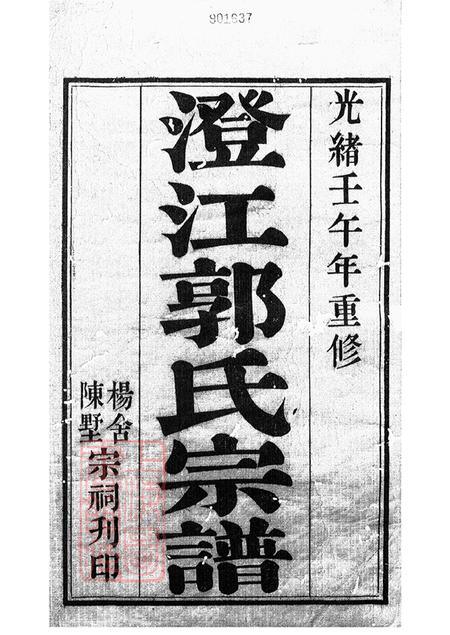 901637
光緒壬午年重修
澄江郭氏宗譜
楊舍
陳墅
宗祠刊印